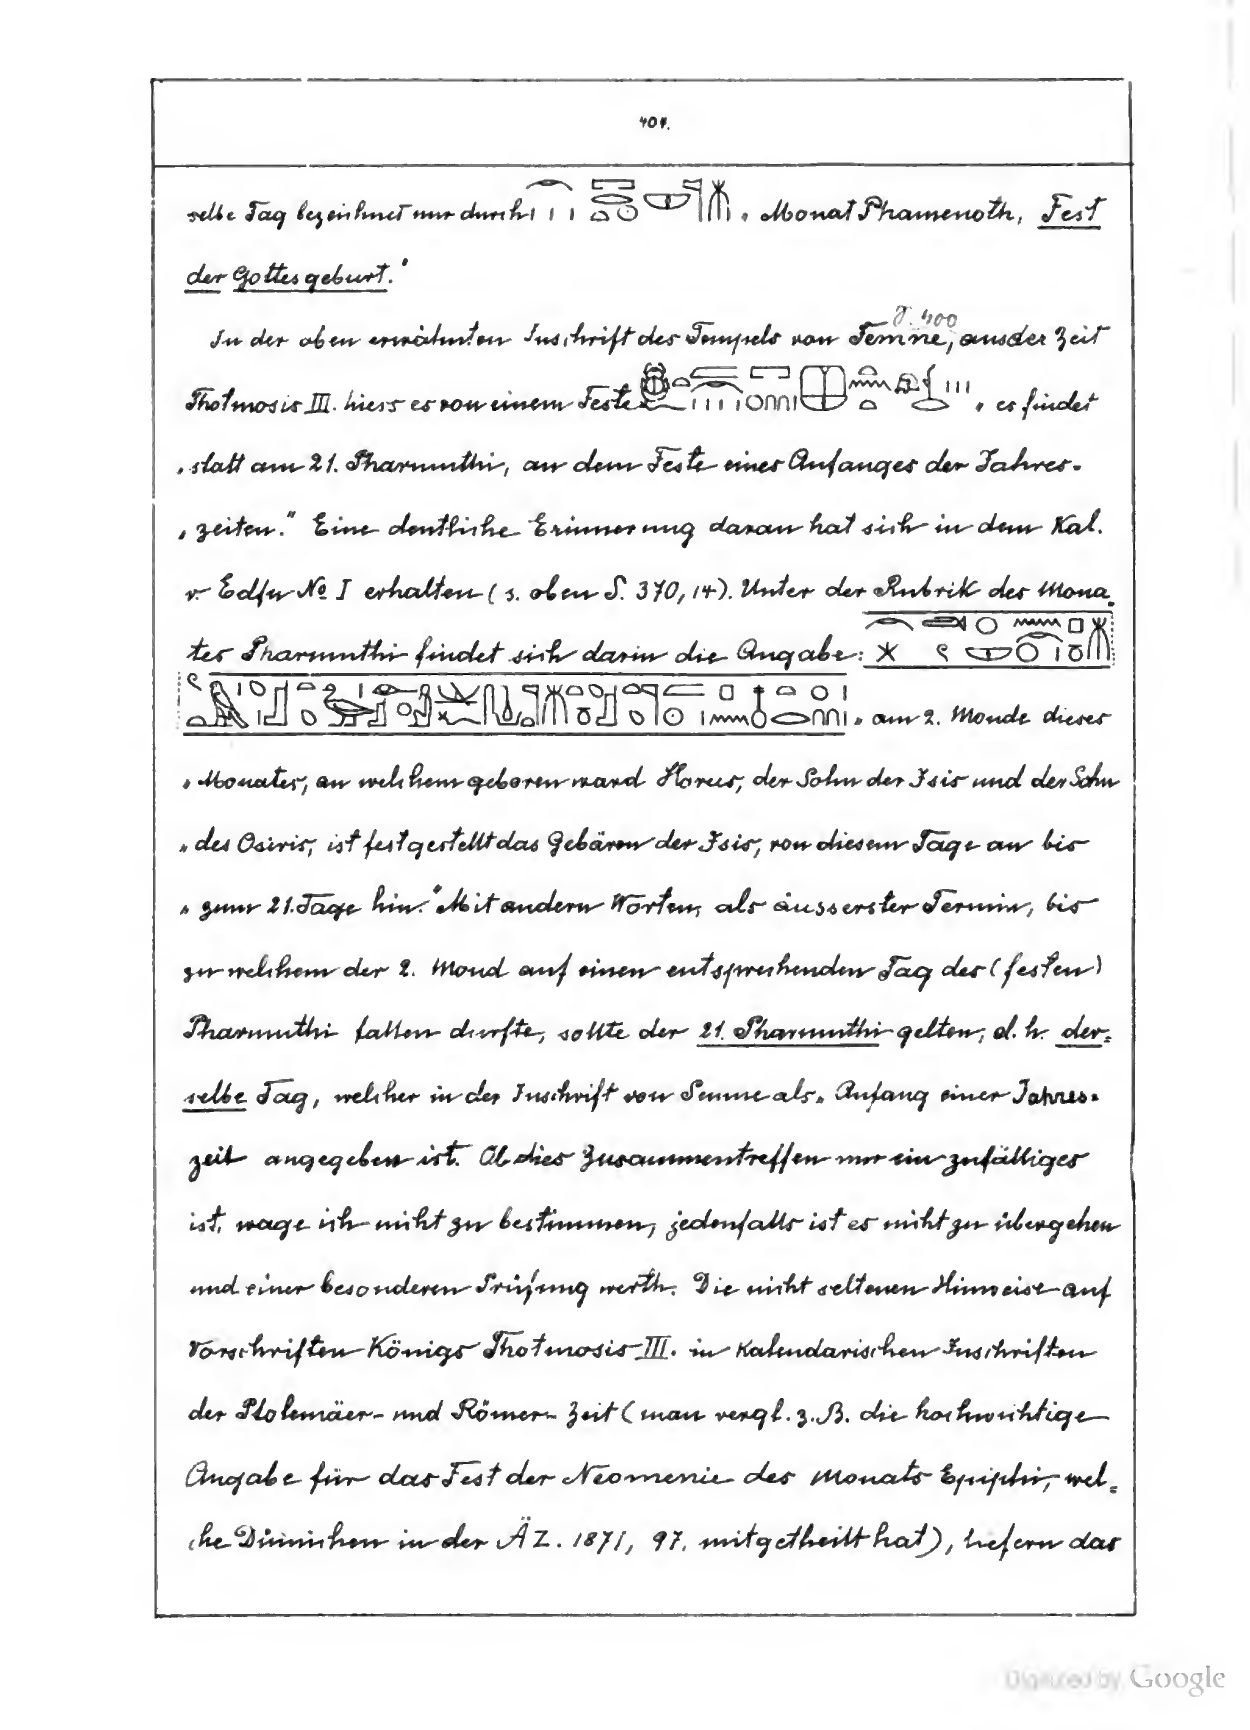 401.
selbe Tag bezeichnet nur durch „ Monat Phamenoth, Fest
der Gottesgeburt."
S. 400
In der oben erwähnten Inschrift des Tempels von Semne, aus der Zeit
Thotmosis III. hiess es von einem Feste „ es findet
„ statt am 21. Pharmuthi, an dem Feste eines Anfanges der Jahres-
„ zeiten." Eine deutliche Erinnerung daran hat sich in dem Kal.
v. Edfu No I erhalten (s. oben S. 370, 14). Unter der Rubrik des Mona-
tes Pharmuthi findet sich darin die Angabe:
„ am 2. Monde dieses
„ Monates, an welchem geboren ward Horus, der Sohn der Isis und der Sohn
„ des Osiris, ist festgestellt das Gebären der Isis, von diesem Tage an bis
„ zum 21. Tage hin." Mit andern Worten, als äusserster Termin, bis
zu welchem der 2. Mond auf einen entsprechenden Tag des (festen)
Pharmuthi fallen durfte, sollte der 21. Pharmuthi gelten, d. h. der-
selbe Tag, welcher in der Inschrift von Semne als „ Anfang einer Jahres-
zeit angegeben ist. Ob dies Zusammentreffen nur ein zufälliges
ist, wage ich nicht zu bestimmen, jedenfalls ist es nicht zu übergehen
und einer besonderen Prüfung werth. Die nicht seltenen Hinweise auf
Vorschriften Königs Thotmosis III. in kalendarischen Inschriften
der Ptolemäer- und Römer- Zeit (man vergl. z. B. die hochwichtige
Angabe für das Fest der Neomenie des Monats Epiphi, wel-
che Dümichen in der ÄZ. 1871, 97. mitgetheilt hat), liefern das
Digitized by Google